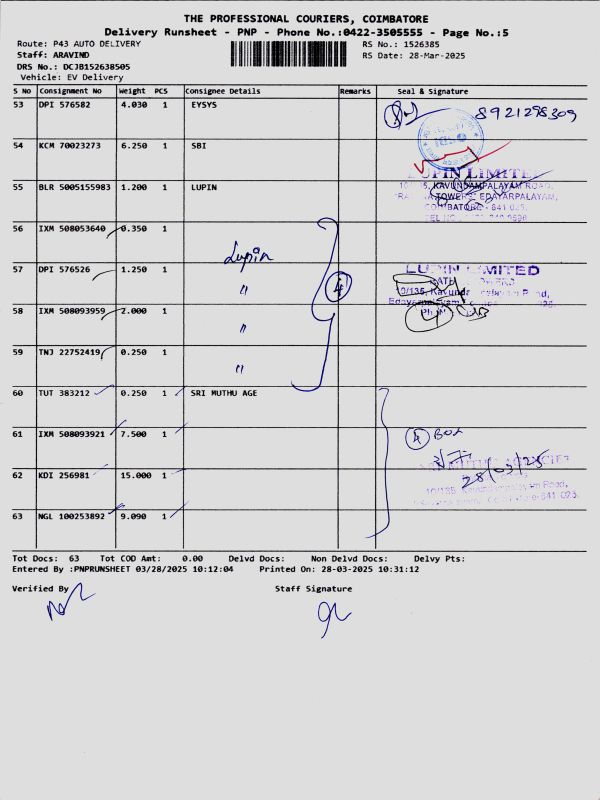 THE PROFESSIONAL COURIERS, COIMBATORE
Delivery Runsheet - PNP - Phone No.:0422-3505555 - Page No.:5
Route: P43 AUTO DELIVERY
RS No.: 1526385
Staff: ARAVIND
RS Date: 28-Mar-2025
DRS No.: DCJB152638505
Vehicle: EV Delivery
S No Consignment No Weight PCS Consignee Details Remarks Seal & Signature
53 DPI 576582 4.030 1 EYSYS 8921298309
54 KCM 70023273 6.250 1 SBI
LUPIN LIMITED
55 BLR 5005155983 1.200 1 LUPIN
KAVUNDAMPALAYAM ROAD,
TOWERS, EDAYARPALAYAM,
COIMBATORE - 641 025.
56 IXM 508053640 0.350 1
Lupin
57 DPI 576526 1.250 1 " 4
LUPIN LIMITED
10/135, Kavunda
58 IXM 508093959 2.000 1 "
59 TNJ 22752419 0.250 1 "
60 TUT 383212 0.250 1 SRI MUTHU AGE
61 IXM 508093921 7.500 1 4 Box
62 KDI 256981 15.000 1 28/03/25
10/135, Kavundampalayam Road,
63 NGL 100253892 9.090 1
Tot Docs: 63 Tot COD Amt: 0.00 Delvd Docs: Non Delvd Docs: Delvy Pts:
Entered By :PNPRUNSHEET 03/28/2025 10:12:04 Printed On: 28-03-2025 10:31:12
Verified By Staff Signature